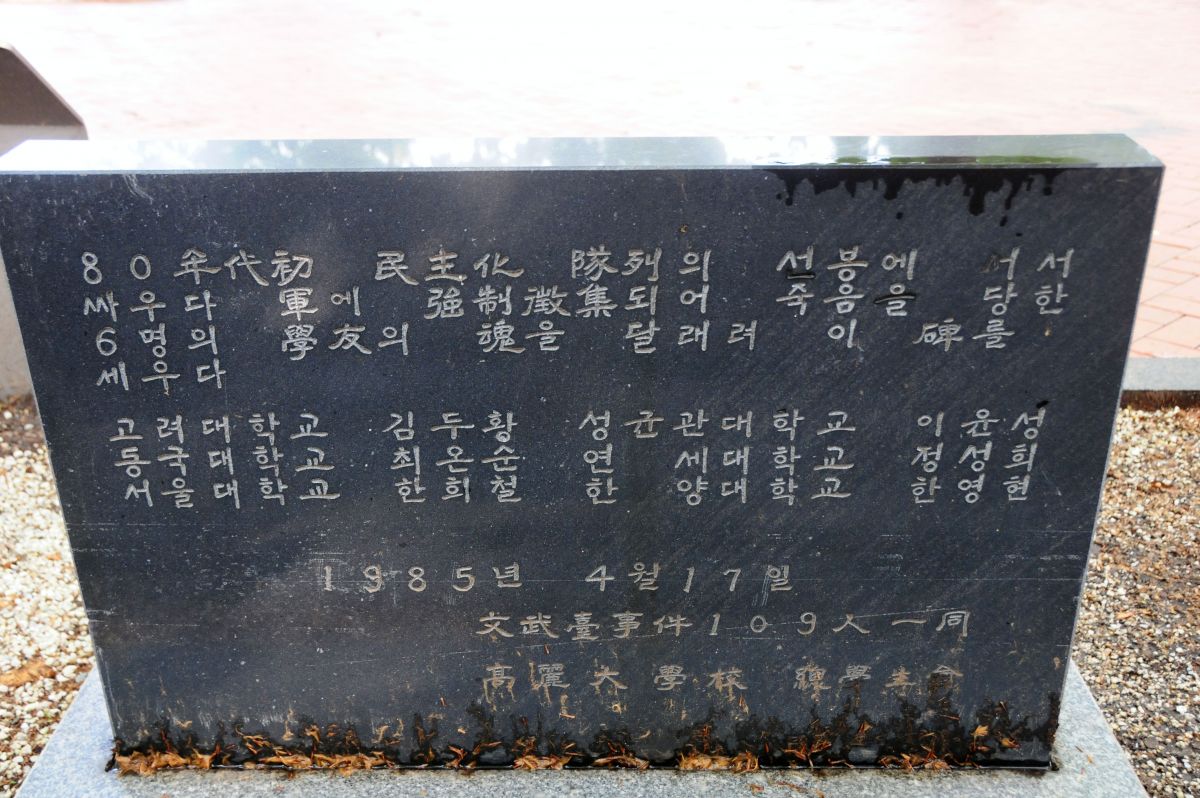 80年代初 民主化 隊列의 선봉에 서서
싸우다 軍에 強制徵集되어 죽음을 당한
6명의 學友의 魂을 달래려 이 碑를
세우다
고려대학교 김두황 성균관대학교 이윤성
동국대학교 최온순 연세대학교 정성희
서울대학교 한희철 한양대학교 한영현
1985년 4월17일
文武臺事件109人一同
高麗大學校 總學生會